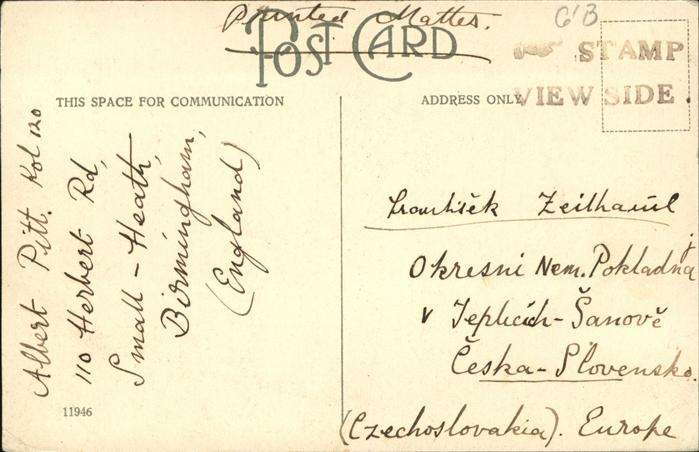 Printed Matter.
POST CARD
GB
STAMP
VIEW SIDE.
THIS SPACE FOR COMMUNICATION
ADDRESS ONLY
Albert Pitt. Kol 120
110 Herbert Rd,
Small-Heath,
Birmingham,
(England)
11946
František Zeithaml
Okresni Nem. Pokladna
v Teplicích-Šanově
Česka-Slovensko.
(Czechoslovakia). Europe